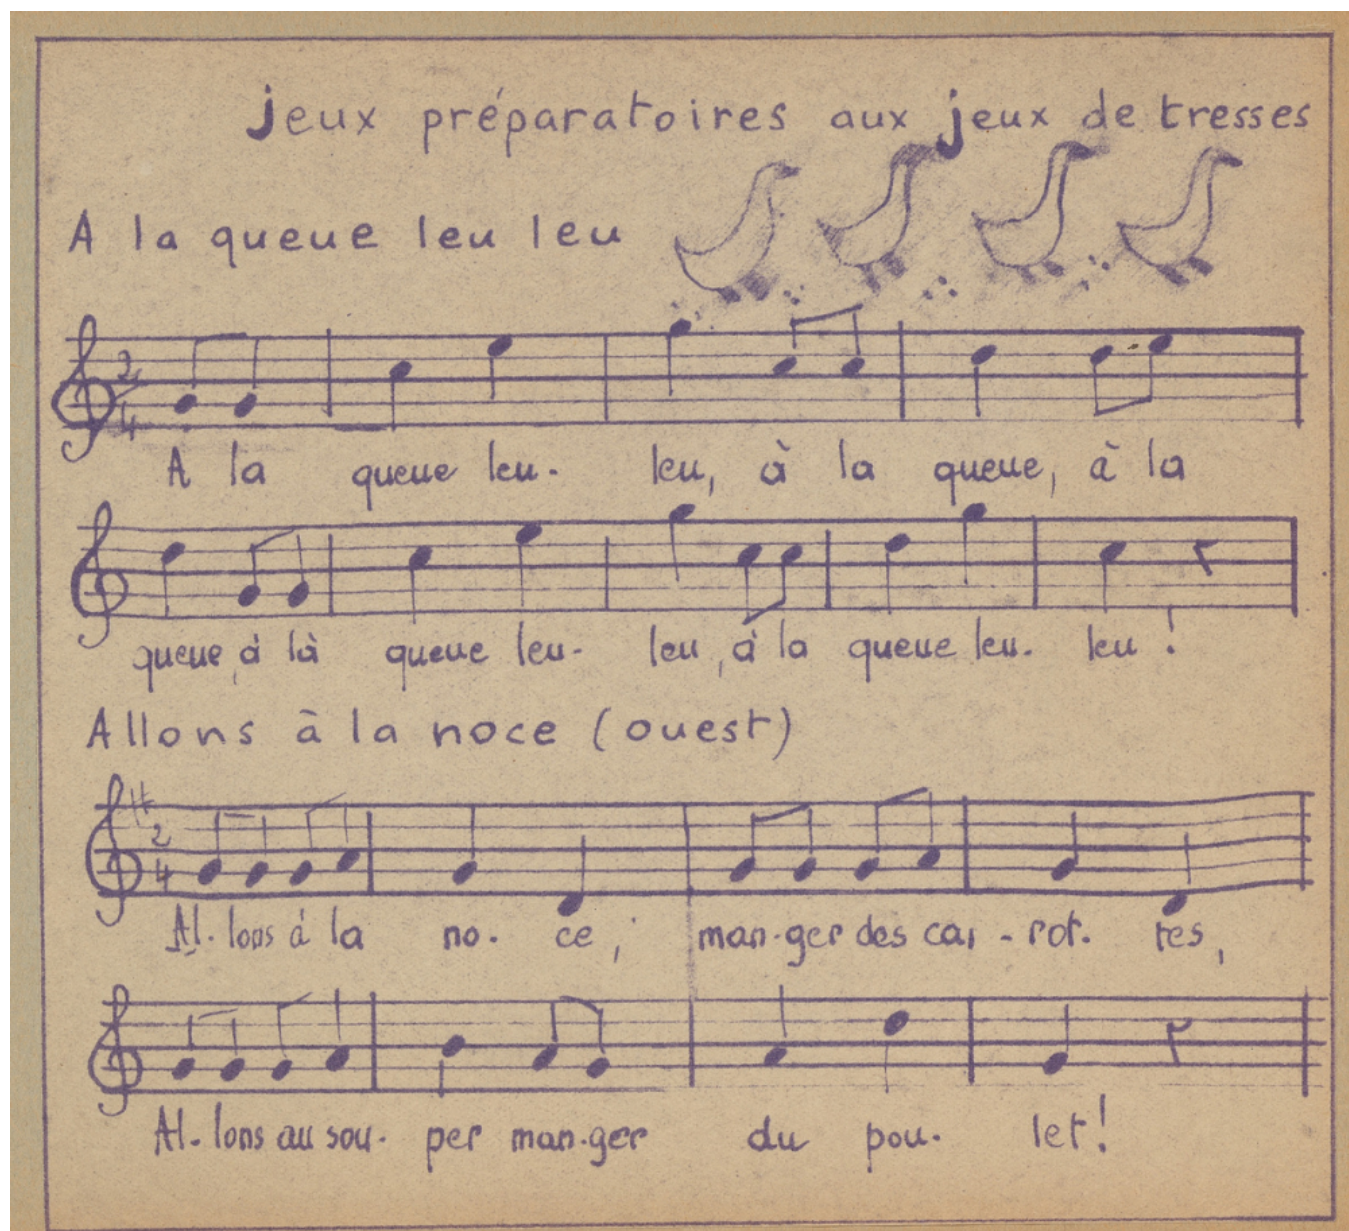 jeux préparatoires aux jeux de tresses
A la queue leu leu
2
4
A la queue leu- leu, à la queue, à la
queue, à là queue leu- leu, à la queue leu- leu !
Allons à la noce (ouest)
2
4
Al- lons à la no- ce, man-ger des car - rot- tes,
Al- lons au sou- per man-ger du pou- let!